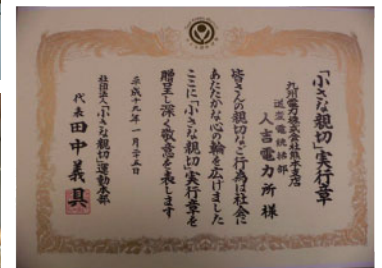 「小さな親切」実行章
九州電力株式会社熊本支店
送変電統括部
人吉電力所 様
皆さんの親切な行為は社会に
あたたかな心の輪を広げました
ここに「小さな親切」実行章を
贈呈し深く敬意を表します
平成十九年一月二十五日
社団法人「小さな親切」運動本部
代表 田中義具